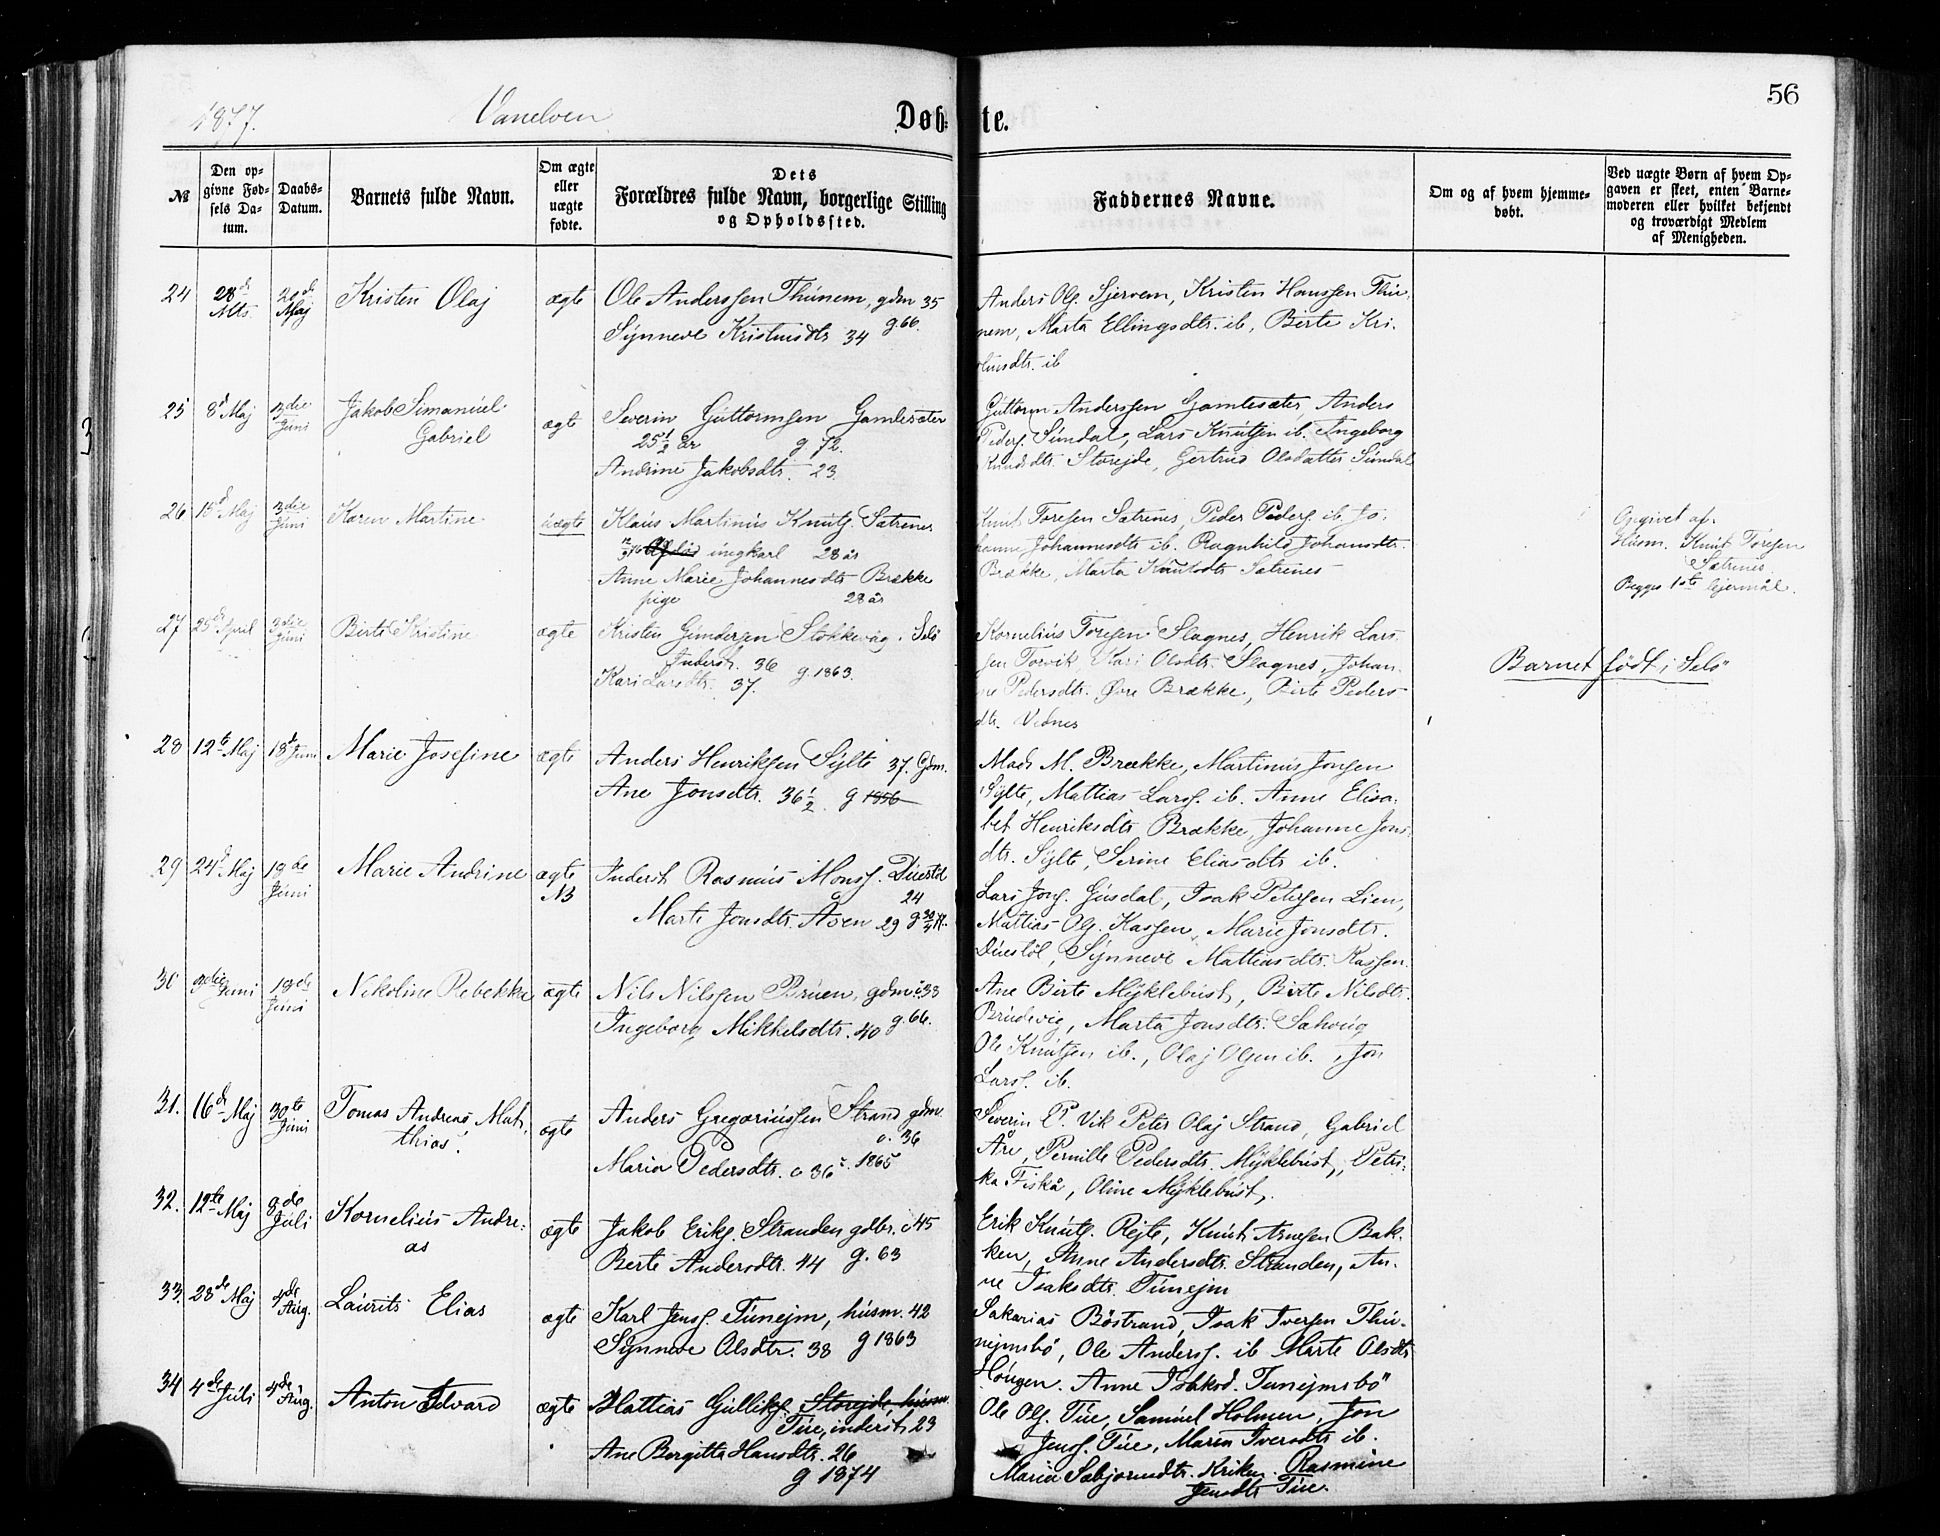 56
1877.
Vanelven
Døbte.
№
Den opgivne Fødsels Datum.
Daabs-Datum.
Barnets fulde Navn.
Om ægte eller uægte fødte.
Dets Forældres fulde Navn, borgerlige Stilling og Opholdssted.
Faddernes Navne.
Om og af hvem hjemmedøbt.
Ved uægte Børn af hvem Opgaven er skeet, enten Barnemoderen eller hvilket bekjendt og troværdigt Medlem af Menigheden.
24 28d Mts. 20de Maj Kristen Olaj ægte Ole Anderssen Thúnem, gdm 35
Sÿnneve Kristensdtr 34 g. 66.
Anders Ols. Sjervem, Kristen Hanssen Thú-
nem, Marta Ellingsdtr. ib, Birte Kri-
stensdtr. ib
25 8d Maj 3die Júni Jakob Simanúel
Gabriel
ægte Severin Gúttormsen Gamlesæter
25½ år g 72.
Andrine Jakobsdtr. 23.
Gúttorm Anderssen Gamlesæter, Anders
Peders. Súndal, Lars Knútsen ib. Ingeborg
Knudsdtr. Storejde, Gertrud Olsdatter Súndal
26 15d Maj 3die Júni Karen Martine úægte Klaús Martinús Knúts. Sætrenes
úngkarl 28 år
Anne Marie Johannesdtr Brække
pige 28 år
Knút Toresen Sætrenes, Peder Peders. ib. Jo-
hanne Johannesdtr ib. Ragnhild Johansdtr.
Brække, Marta Knútsdtr Sætrenes
Opgivet af
Húsm. Knút Toresen
Sætrenes.
Begges 1ste lejermål.
27 25de April 3die Júni Birte Kristine ægte Kristen Gúndersen Stokkevåg. Selö
Inderst. 36 g. 1863.
Kari Larsdtr. 37.
Kornelius Toresen Slagnes, Henrik Lars-
sen Torvik, Kari Olsdtr. Slagnes, Johan-
ne Pedersdtr. Øvre Brække, Birte Peders-
dtr. Vednes
Barnet födt i Selö
28 12te Maj 18de Júni Marie Josefine ægte Anders Henriksen Sÿlte 37. Gdm.
Ane Jonsdtr. 36½. g 1856
Mads M. Brække, Martinús Jonsen
Sÿlte, Mattias Larss. ib. Anne Elisa-
bet Henriksdtr Brække, Johanne Jons-
dtr. Sÿlte, Serine Eliasdtr ib.
29 24d Maj 18de Júni Marie Andrine ægte
NB
Inderst Rasmús Monss. Dúestöl
24
Marte Jonsdtr. Åsen 29
Lars Jons. Gúsdal, Isak Petersen Lien,
Mattias Ols. Kassen, Marie Jonsdtr.
Dúestöl, Sÿnneve Mattiasdtr. Kassen.
30 3die Júni 18de Júni Nikoline Rebekka ægte Nils Nilssen Brúen, gdm. 33
Ingeborg Mikkelsdtr. 40 g. 66.
Ane Birte Mÿklebúst, Birte Nilsdtr.
Brúdevig, Marta Jonsdtr.
Ole Knútsen ib., Olaj Olsen ib., Jon
Larss. ib.
31. 16de Maj 30te Júni Tomas Andreas Mat-
thias.
ægte Anders Gregoriússen Strand gdm.
o. 36
Maria Pedersdtr. o 36 g. 1865
Severin P. Vik Peter Olaj Strand, Gabriel
Åre, Pernille Pedersdtr. Mÿklebúst, Petri-
ka Fiskå, Oline Mÿklebúst,
32. 12te Maj 8de Júli Kornelius Andre-
as
ægte Jakob Eriks. Stranden gdbr. o 45
Berte Andersdtr. 44 g. 63
Erik Knúts. Rejte, Knút Arnesen Bak-
ken, Anne Andersdtr. Stranden, An-
ne Isaksdtr. Túnejm
33. 28de Maj 4de Aúg. Laúrits Elias ægte Karl Jenss. Túnejm, húsm. 42
Sÿnneve Olsdtr. 38 g 1863
Sakarias Böstrand, Isak Iversen Thú-
nejmsbö, Ole Anderss. ib Marte Olsdtr
Höugen. Anne Isaksd. Tunejmsbö
34 4de Júli 4de Aúg. Anton Edvard ægte Mattias Gúlliks. Storejde, húsm.
Túe, inderst, 23
Ane Bergitte Hansdtr. 26
g 1874
Ole Ols. Túe, Samúel Holmen, Jon
Jenss. Túe, Maren Iversdtr ib.
Maria Sæbjörnsdtr. Kriken Rasmine
Jensdtr Túe.